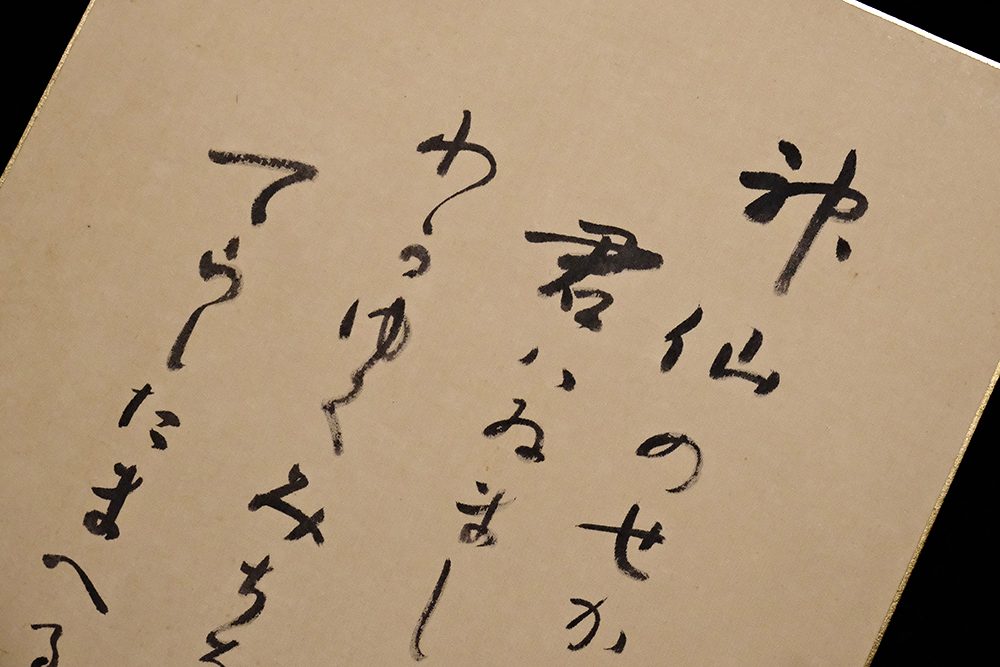 神仙のせか
君ハゐまし
わかゆくみちを
てらしたまへる